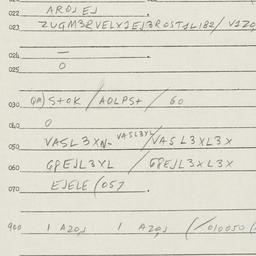 022 AROJ EJ
023 ZUGM3RVELVIEJ3ROSTJLI82/ V1Z0
024 —
025 0
030 S+OK / AOLPS+ / 60
040 0
050 VASL3XN- VASL3XL /VASL3XL3X
060 GPEJL3XL / GPEJL3XL3X
070 EJELE (057
900 1 AZOJ 1 AZOJ (/010050